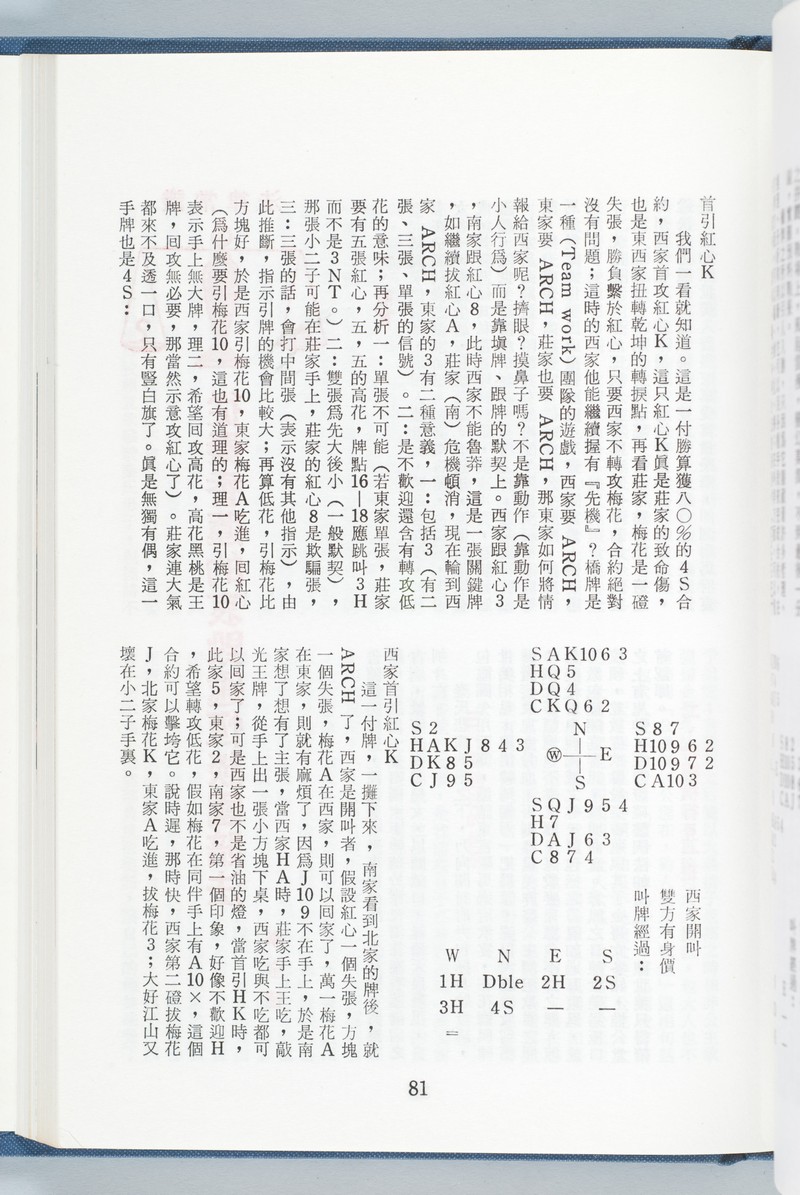 首引紅心K
我們一看就知道。這是一付勝算獲八〇%的4S合
約，西家首攻紅心K，這只紅心K眞是莊家的致命傷，
也是東西家扭轉乾坤的轉捩點，再看莊家，梅花是一磴
失張，勝負繫於紅心，只要西家不轉攻梅花，合約絕對
沒有問題；這時的西家他能繼續握有『先機』？橋牌是
一種（Team work）團隊的遊戲，西家要 ARCH，
東家要 ARCH，莊家也要 ARCH，那東家如何將情
報給西家呢？擠眼？摸鼻子嗎？不是靠動作（靠動作是
小人行爲）而是靠塡牌、跟牌的默契上。西家跟紅心3
，南家跟紅心8，此時西家不能魯莽，這是一張關鍵牌
，如繼續拔紅心A，莊家（南）危機頓消，現在輪到西
家 ARCH，東家的3有二種意義，一：包括3（有二
張、三張、單張的信號）。二：是不歡迎還含有轉攻低
花的意味；再分析一：單張不可能（若東家單張，莊家
要有五張紅心，五，五的高花，牌點16—18應跳叫3H
而不是3NT。）二：雙張爲先大後小（一般默契），
那張小二子可能在莊家手上，莊家的紅心8是欺騙張，
三：三張的話，會打中間張（表示沒有其他指示），由
此推斷，指示引牌的機會比較大；再算低花，引梅花比
方塊好，於是西家引梅花10，東家梅花A吃進，回紅心
（爲什麼要引梅花10，這也有道理的；理一，引梅花10
表示手上無大牌，理二，希望回攻高花，高花黑桃是王
牌，回攻無必要，那當然示意攻紅心了）。莊家連大氣
都來不及透一口，只有豎白旗了。眞是無獨有偶，這一
手牌也是4S：
西家開叫
雙方有身價
叫牌經過：
S A K 10 6 3
H Q 5
D Q 4
C K Q 6 2
S 2
H A K J 8 4 3
D K 8 5
C J 9 5
N
W E
S
S 8 7
H 10 9 6 2
D 10 9 7 2
C A 10 3
S Q J 9 5 4
H 7
D A J 6 3
C 8 7 4
W N E S
1H Dble 2H 2S
3H 4S — —
＝
西家首引紅心K
這一付牌，一攤下來，南家看到北家的牌後，就
ARCH 了，西家是開叫者，假設紅心一個失張，方塊
一個失張，梅花A在西家，則可以回家了，萬一梅花A
在東家，則就有麻煩了，因爲J109不在手上，於是南
家想了想有了主張，當西家HA時，莊家手上王吃，敲
光王牌，從手上出一張小方塊下桌，西家吃與不吃都可
以回家了；可是西家也不是省油的燈，當首引HK時，
此家5，東家2，南家7，第一個印象，好像不歡迎H
，希望轉攻低花，假如梅花在同伴手上有A10×，這個
合約可以擊垮它。說時遲，那時快，西家第二磴拔梅花
J，北家梅花K，東家A吃進，拔梅花3；大好江山又
壞在小二子手裏。
81